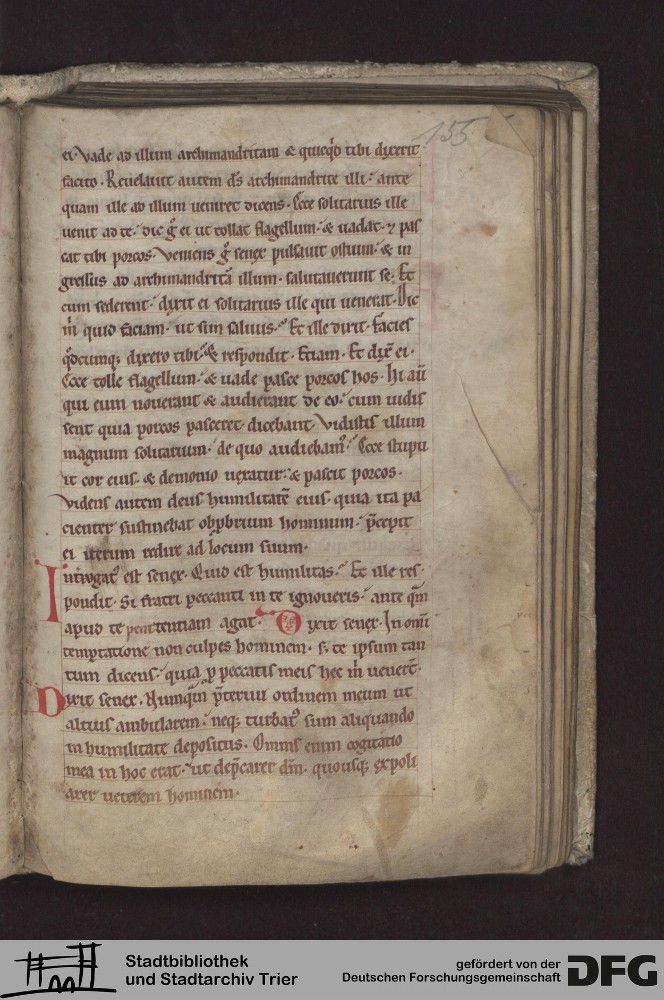 155
ei. Vade ad illum archimandritam & quicq̄d tibi dixerit
facito. Reuelauit autem ds̄ archimandrite illi. ante
quam ille ad illum ueniret dicens. Ecce solitarius ille
uenit ad te. dic g̃ ei ut tollat flagellum. & uadat. ⁊ pas
cat tibi porcos. Veniens g̃ senex pulsauit ostium. & in
gressus ad archimandritā illum. salutauerunt se. Et
cum sederent. dixit ei solitarius ille qui uenerat. Dic
m̄ quid faciam. ut sim saluus. Et ille dixit. Facies
q̄dcumq; dixero tibi. & respondit. Etiam. Et dix̄ ei.
Ecce tolle flagellum. & uade pasce porcos hos. Hi aū
qui eum nouerant & audierant de eo. cum uidis
sent quia porcos pasceret. dicebant. Vidistis illum
magnum solitarium. de quo audiebam᷒. Ecce stupu
it cor eius. & demonio uexatur. & pascit porcos.
Videns autem deus humilitatē eius. quia ita pa
cienter sustinebat obp̄brium hominum. p̄cepit
ei iterum redire ad locum suum.
Int̄rogat᷒ est senex. Quid est humilitas. Et ille res
pondit. Si fratri peccanti in te ignoueris. ante q̄m
apud te penitentiam agat. Dixit senex. In om̄i
temptatione non culpes hominem. s; te ipsum tan
tum dicens. quia ꝑ peccatis meis hec m̄ uener̄t.
Dixit senex. Numq̄m p̄teriui ordinem meum ut
altius ambularem. neq; turbat᷒ sum aliquando
in humilitate depositus. Omnis enim cogitatio
mea in hoc erat. ut dep̄carer dm̄. quousq; expoli
arer ueterem hominem.
Stadtbibliothek
und Stadtarchiv Trier
gefördert von der
Deutschen Forschungsgemeinschaft
DFG